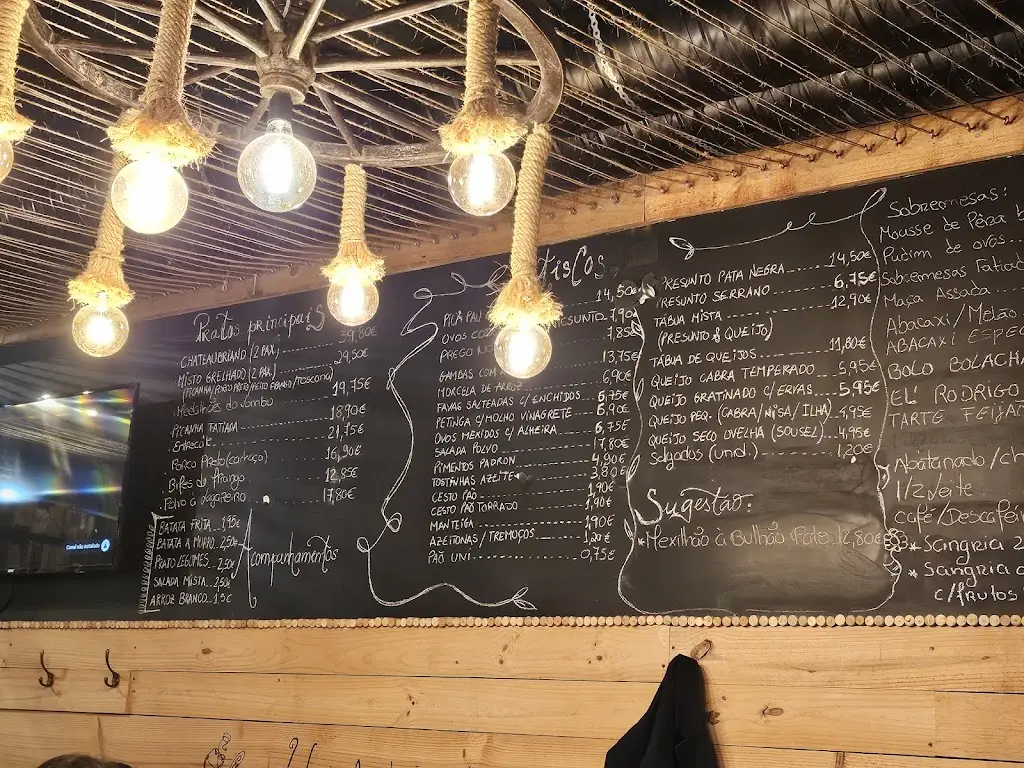 Pratos principais
CHATEAUBRIAND (2 PAX.) 39,80€
MISTO GRELHADO (2 PAX.) 29,50€
Medalhões do lombo 19,75€
PICANHA FATIADA 18,90€
Entrecôte 21,75€
Porco Preto (cachaço) 16,90€
Bifes de frango 12,85€
Polvo à lagareiro 17,80€
BATATA FRITA 1,95€
BATATA A MURRO 2,50€
PRATO LEGUMES 2,50€
SALADA MISTA 2,50€
ARROZ BRANCO 1,5€
Acompanhamentos
TISCOS
PICA PAU 14,50€
OVOS 7,90
PREGO 7,85
GAMBAS COM 13,75€
MORCELA DE ARROZ 6,90€
FAVAS SALTEADAS C/ ENCHIDOS 6,75€
PETINGA C/MOLHO VINAGRETE 6,90€
OVOS MEXIDOS C/ ALHEIRA 6,75€
SALADA POLVO 17,80€
PIMENTOS PADRON 4,90€
TOSTINHAS AZEITE 3,80€
CESTO PÃO 1,40€
CESTO PÃO TORRADO 1,90€
MANTEIGA 1,90€
AZEITONAS / TREMOÇOS
PÃO UNI 0,75€
PRESUNTO PATA NEGRA 14,50€
PRESUNTO SERRANO 6,75€
TÁBUA MISTA 12,90€
(PRESUNTO & QUEIJO)
TÁBUA DE QUEIJOS 11,80€
QUEIJO CABRA TEMPERADO 5,95€
QUEIJO GRATINADO C/ ERVAS 5,95€
QUEIJO PEQ. (CABRA/NISA/ILHA) 4,95€
QUEIJO SECO OVELHA (SOUSEL) 4,95€
Salgados (und.) 1,20€
Sugestão:
*Mexilhão à Bulhão Pato 12,80€
Sobremesas:
Mousse de Pêra
Pudim de ovos
Sobremesas Fatiada
Maçã Assada
Abacaxi / Melão
ABACAXI ESPEC
BOLO BOLACHA
EL RODRIGO
TARTE FEIJÃO
Abatanado /
1/2 leite
Café/Descafei
* Sangria 2
* Sangria
c/frutos
Canal não instalado